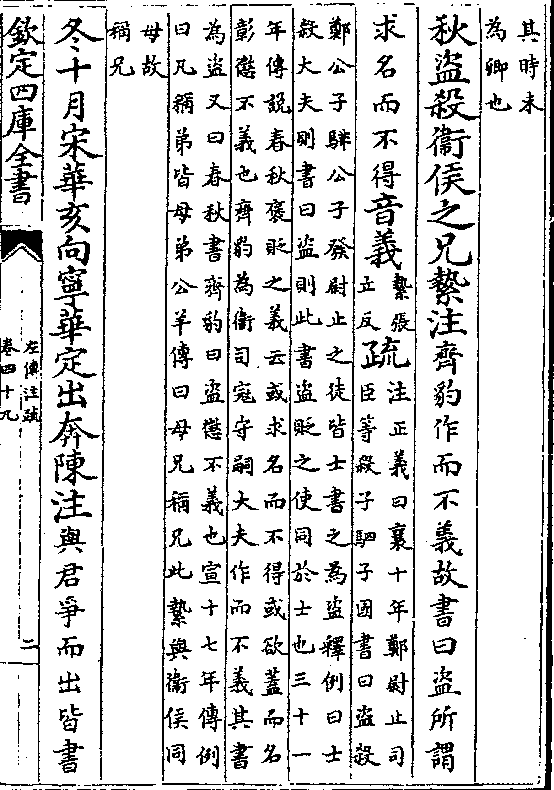 其時未
為卿也
秋盜殺衞侯之兄縶注齊豹作而不義故書曰盜所謂
求名而不得音義
縶張
立反
疏
注正義曰襄十年鄭尉止司
臣等殺子駟子國書曰盜殺
鄭公子騑公子發尉止之徒皆士書之為盜釋例曰士
殺大夫則書曰盜則此書盜貶之使同於士也三十一
年傳說春秋褒貶之義云或求名而不得或欲蓋而名
彰懲不義也齊豹為衞司寇守嗣大夫作而不義其書
為盜又曰春秋書齊豹曰盜懲不義也宣十七年傳例
曰凡稱弟皆母弟公羊傳曰母兄稱兄此縶與衞侯同
母故
稱兄
冬十月宋華亥向寧華定出奔陳注與君爭而出皆書
欽定四庫全書
左傳注疏
卷四十九
二